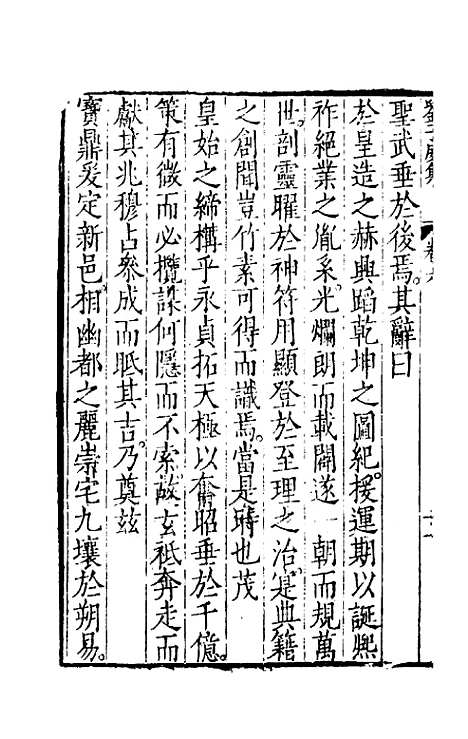 聖武垂於後焉其辭曰
於皇造之赫興蹈乾坤之圖紀援運期以誕熙
祚絕業之胤系光爛朗而載闢遂一朝而規萬
世剖靈曜於神符用顯登於至理之治寔典籍
之創聞豈竹素可得而識焉當是時也茂
皇始之締搆乎永貞拓天極以奮昭垂於千億
策有微而必攬謀何隱而不索故玄祗奔走而
獻其兆穆占叅成而眡其吉乃奠茲
寶鼎爰定新邑相幽都之麗崇宅九壤於朔易